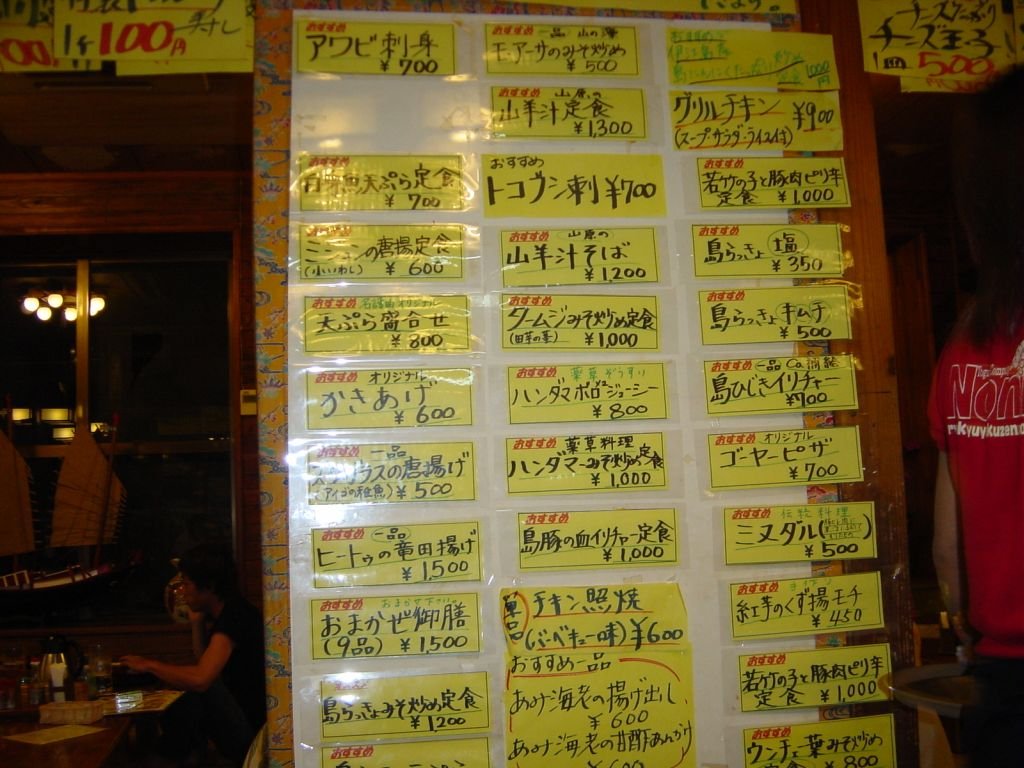 100円
おすすめ
アワビ刺身
¥700
おすすめ
天ぷら定食
¥700
の唐揚定食
(小いわし) ¥600
おすすめ オリジナル
天ぷら盛合せ
¥800
おすすめ オリジナル
かきあげ
¥600
おすすめ 一品
の唐揚げ
(アイゴの稚魚) ¥500
おすすめ 一品
ヒートゥの竜田揚げ
¥1,500
おすすめ
おまかせ御膳
(9品) ¥1,500
島らっきょみそ炒め定食
¥1,200
おすすめ
おすすめ 一品
みそ炒め
¥500
おすすめ 山原の
山羊汁定食
¥1,300
おすすめ
トコブシ刺 ¥700
おすすめ 山原の
山羊汁そば
¥1,200
おすすめ
タームジみそ炒め定食
(田芋の茎) ¥1,000
おすすめ 薬草ぞうすい
ハンダマボロボロジューシー
¥800
おすすめ 薬草料理
ハンダマーみそ炒め定食
¥1,000
おすすめ
島豚の血イリチャー定食
¥1,000
単品
チキン照焼
(バーベキュー味) ¥600
おすすめ一品
あみ海老の揚げ出し
¥600
あみ海老の甘酢あんかけ
おすすめ
グリルチキン ¥900
(スープ・サラダ・ライス付)
おすすめ
若竹の子と豚肉ピリ辛
定食 ¥1,000
おすすめ
島らっきょ 塩
¥350
おすすめ
島らっきょキムチ
¥500
おすすめ 一品
島ひじきイリチャー
¥700
おすすめ オリジナル
ゴーヤーピザ
¥700
おすすめ 伝統料理
ミヌダル
¥500
おすすめ
紅芋のくず揚モチ
¥450
おすすめ
若竹の子と豚肉ピリ辛
定食 ¥1,000
おすすめ
ウンチェー葉みそ炒め
定食 ¥800
チーズ玉子
500円
Non